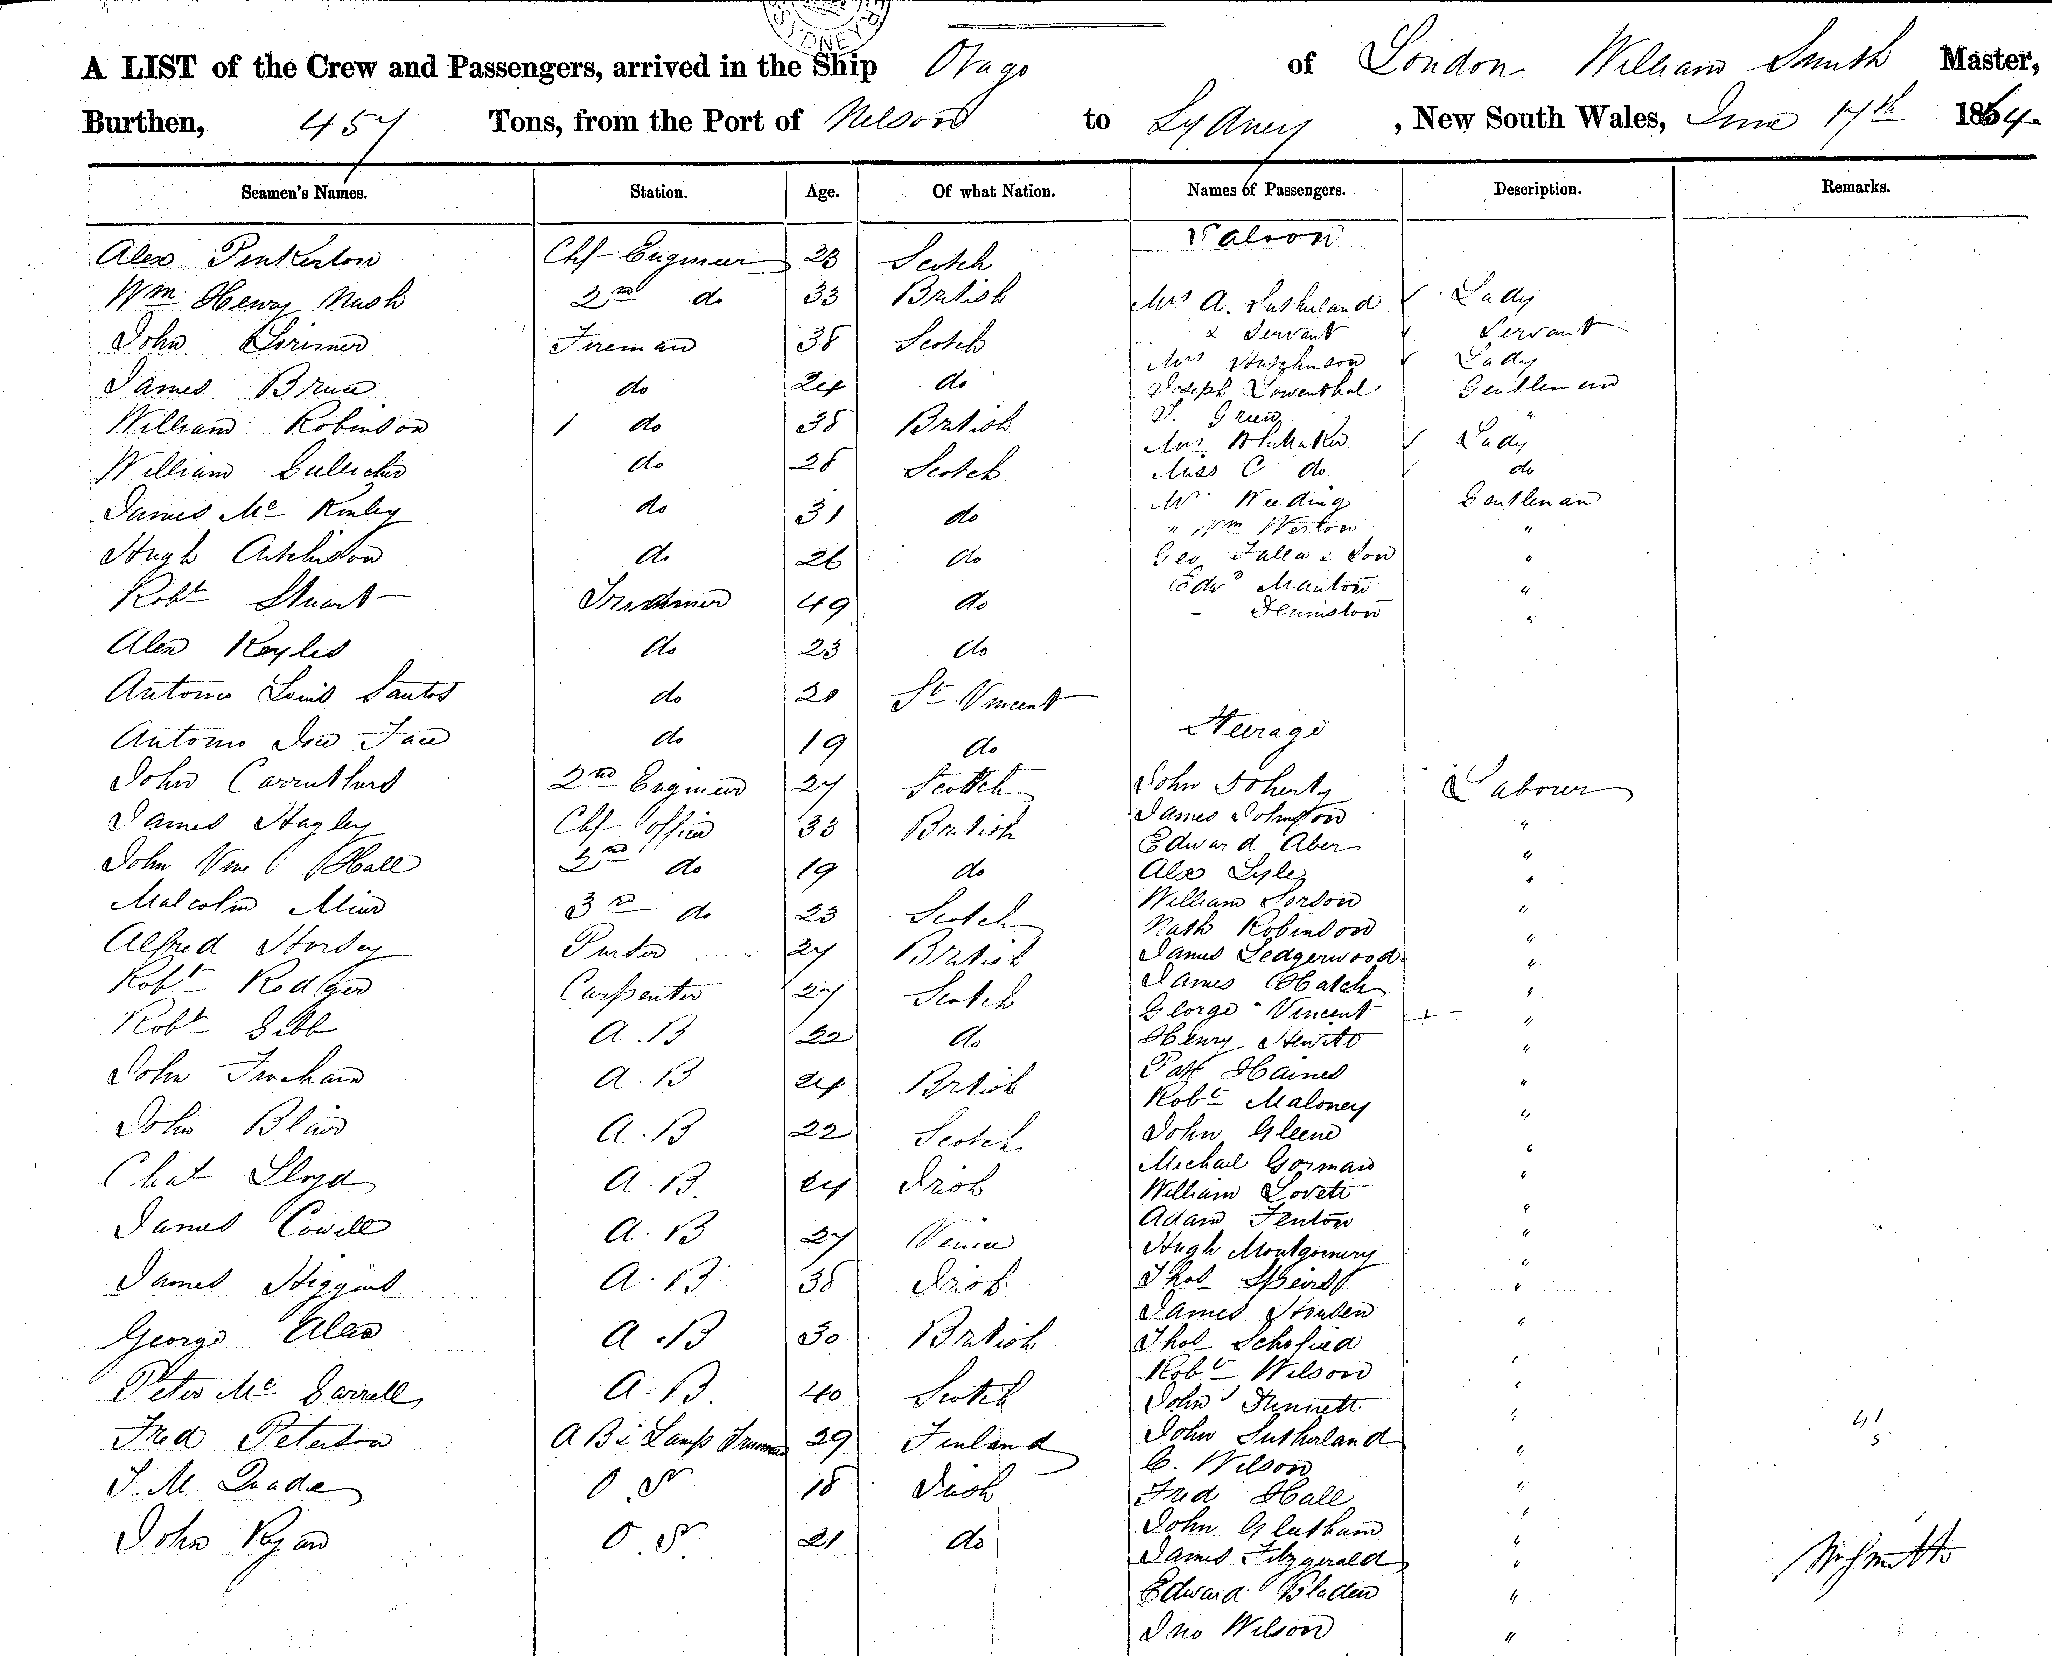 SYDNEY
A LIST of the Crew and Passengers, arrived in the Ship Otago of London William Smith Master,
Burthen, 457 Tons, from the Port of Nelson to Sydney, New South Wales, June 17th 1864
Seamen's Names. Station. Age. Of what Nation. Names of Passengers. Description. Remarks.
Saloon
Alex Pinkerton Chf Engineer 23 Scotch
Wm Henry Nash 2nd do 33 British Mrs A. Sutherland Lady
& Servant Servant
John Lorimer Fireman 38 Scotch
Mrs Hutchinson Lady
James Bruce do 24 do Joseph Lowenthal Gentleman
Green "
William Robinson 1 do 38 British
Mrs Whitaker Lady
William do 28 Scotch Miss C do do
Mr Weeding Gentleman
James Mc Kinley do 31 do
" Wm Weston "
Hugh Aitchison do 26 do Geo Falla & Son "
Edwd Manton "
Robt Stuart Trimmer 49 do
"
Alex Keyles do 23 do
Antonio Louis Santos do 20 St Vincent
Steerage
Antonio do 19 do
John Carruthers 2nd Engineer 27 Scotch John Doherty Labourer
James Hagley Chf Officer 33 British James Johnston "
Edward Aber "
John Vine Hall 2nd do 19 do Alex Lyle "
Malcolm Muir 3rd do 23 Scotch William "
Nath Robinson "
Alfred Horsey Purser 27 British James Ledgerwood "
Robt Rodger Carpenter 27 Scotch James Hatch "
George Vincent "
Robt Gibb A.B 22 do Henry Hewitt "
Pat Haines "
John A.B 24 British
Robt Maloney "
John Blair A.B 22 Scotch John Gleene "
Michael Gorman "
Chas Lloyd A.B. 24 Irish William Lovett "
Adam Fenton "
James Cowell A.B 27 Venice
Hugh Montgomery "
James Higgins A.B 38 Irish Thos "
James "
George Alex A.B 30 British Thos Schofield "
Robt Wilson "
Peter Mc A.B. 40 Scotch John Bennett "
Fred Peterson A B & Lamp Trimmer 29 Finland John Sutherland " 41
5
C. Wilson "
J. M. Quade O.S 18 Irish Fred Hall "
John "
John Ryan O.S. 21 do
James Fitzgerald " Wm Smith
Edward Bladen "
Jno Wilson "